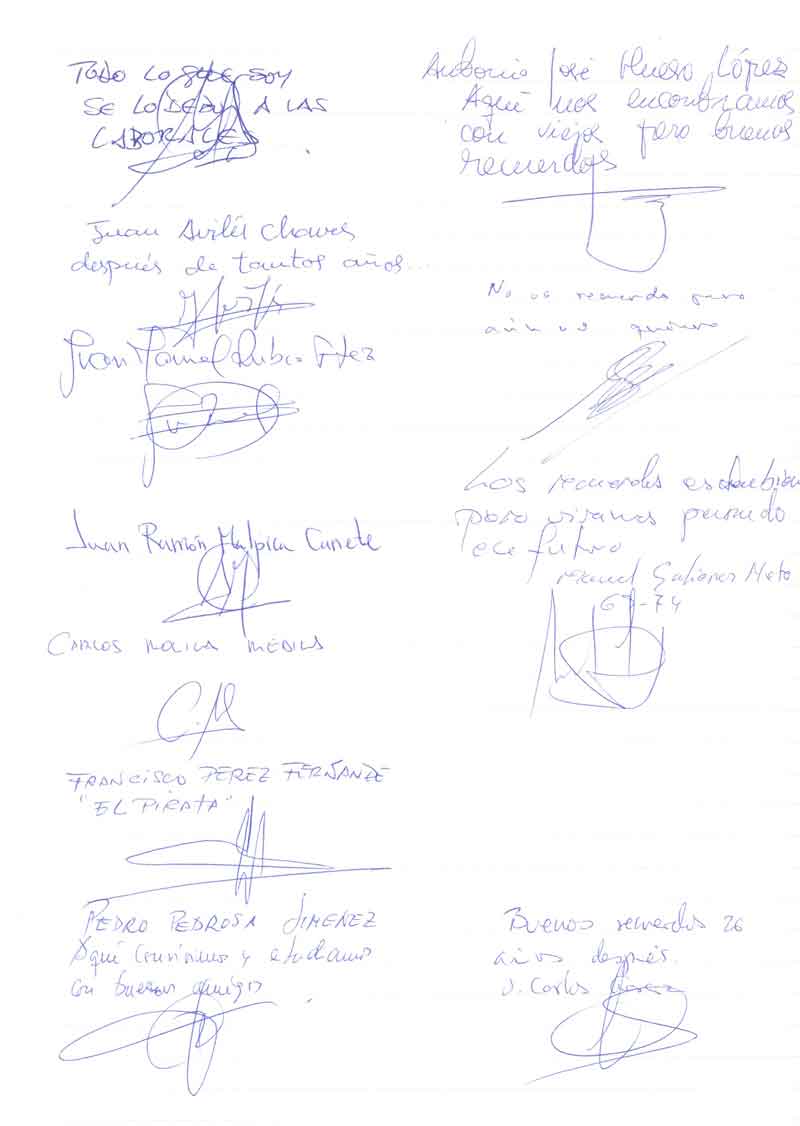 TODO LO QUE SOY
SE LO DEBO A LAS
LABORALES
Juan Avilés Chaves
después de tantos años...
Juan Manuel Rubio
Juan Ramón Malpica Cañete
CARLOS MOLINA
FRANCISCO PEREZ FERNANDE
"EL PIRATA"
PEDRO PEDROSA JIMENEZ
Aquí convivimos y estudiamos
con buenos amigos
Antonio José Hueso López
Aquí nos encontramos
con viejos pero buenos
recuerdos
No os recuerdo pero
aún os quiero
Los recuerdos están bien
pero vivamos pensando
en el futuro
Manuel Nieto
67-74
Buenos recuerdos 26
años después.
J. Carlos